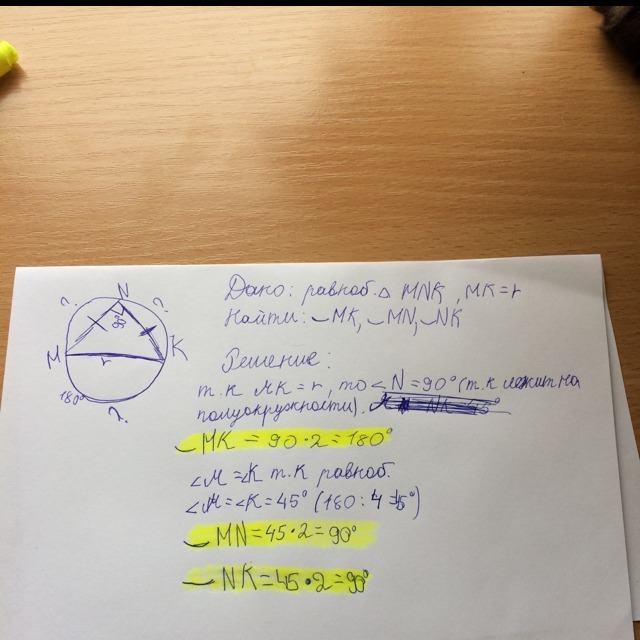 Дано: равноб. △ MNK, MK = r
Найти: ⌣MK, ⌣MN, ⌣NK
? N ?
90°
M r K
180°
?
Решение:
т.к MK = r, то ∠N = 90° (т.к лежит на
полуокружности).
⌣MK = 90·2 = 180°
∠M = ∠K т.к равноб.
∠M = ∠K = 45° (180:4=45°)
⌣MN = 45·2 = 90°
⌣NK = 45·2 = 90°